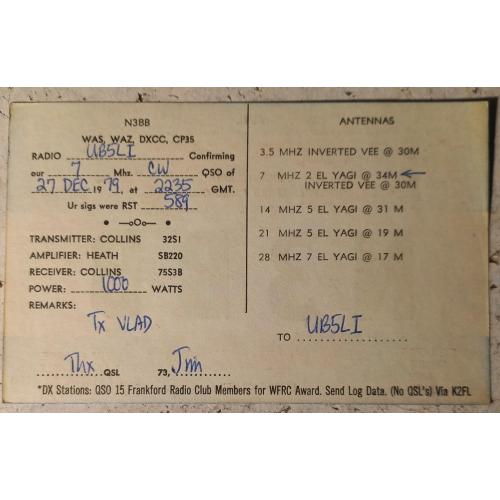 N3BB
WAS, WAZ, DXCC, CP35
RADIO UB5LI Confirming
our 7 Mhz. CW QSO of
27 DEC 1979, at 2235 GMT.
Ur sigs were RST 589
—oOo—
TRANSMITTER: COLLINS 32S1
AMPLIFIER: HEATH SB220
RECEIVER: COLLINS 75S3B
POWER: 1000 WATTS
REMARKS:
Tx VLAD
Thx QSL 73, Jim
ANTENNAS
3.5 MHZ INVERTED VEE @ 30M
7 MHZ 2 EL YAGI @ 34M
INVERTED VEE @ 30M
14 MHZ 5 EL YAGI @ 31 M
21 MHZ 5 EL YAGI @ 19 M
28 MHZ 7 EL YAGI @ 17 M
TO UB5LI
*DX Stations: QSO 15 Frankford Radio Club Members for WFRC Award. Send Log Data. (No QSL's) Via K2FL